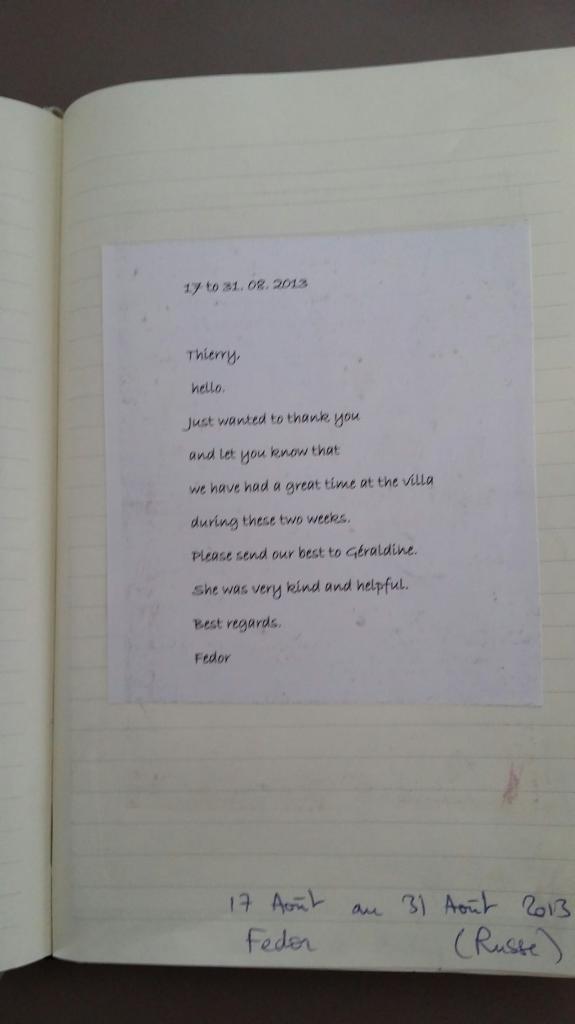 17 to 31. 08. 2013
Thierry,
hello.
Just wanted to thank you
and let you know that
we have had a great time at the villa
during these two weeks.
Please send our best to Géraldine.
She was very kind and helpful.
Best regards.
Fedor
17 Août au 31 Août 2013
Fedor (Russe)